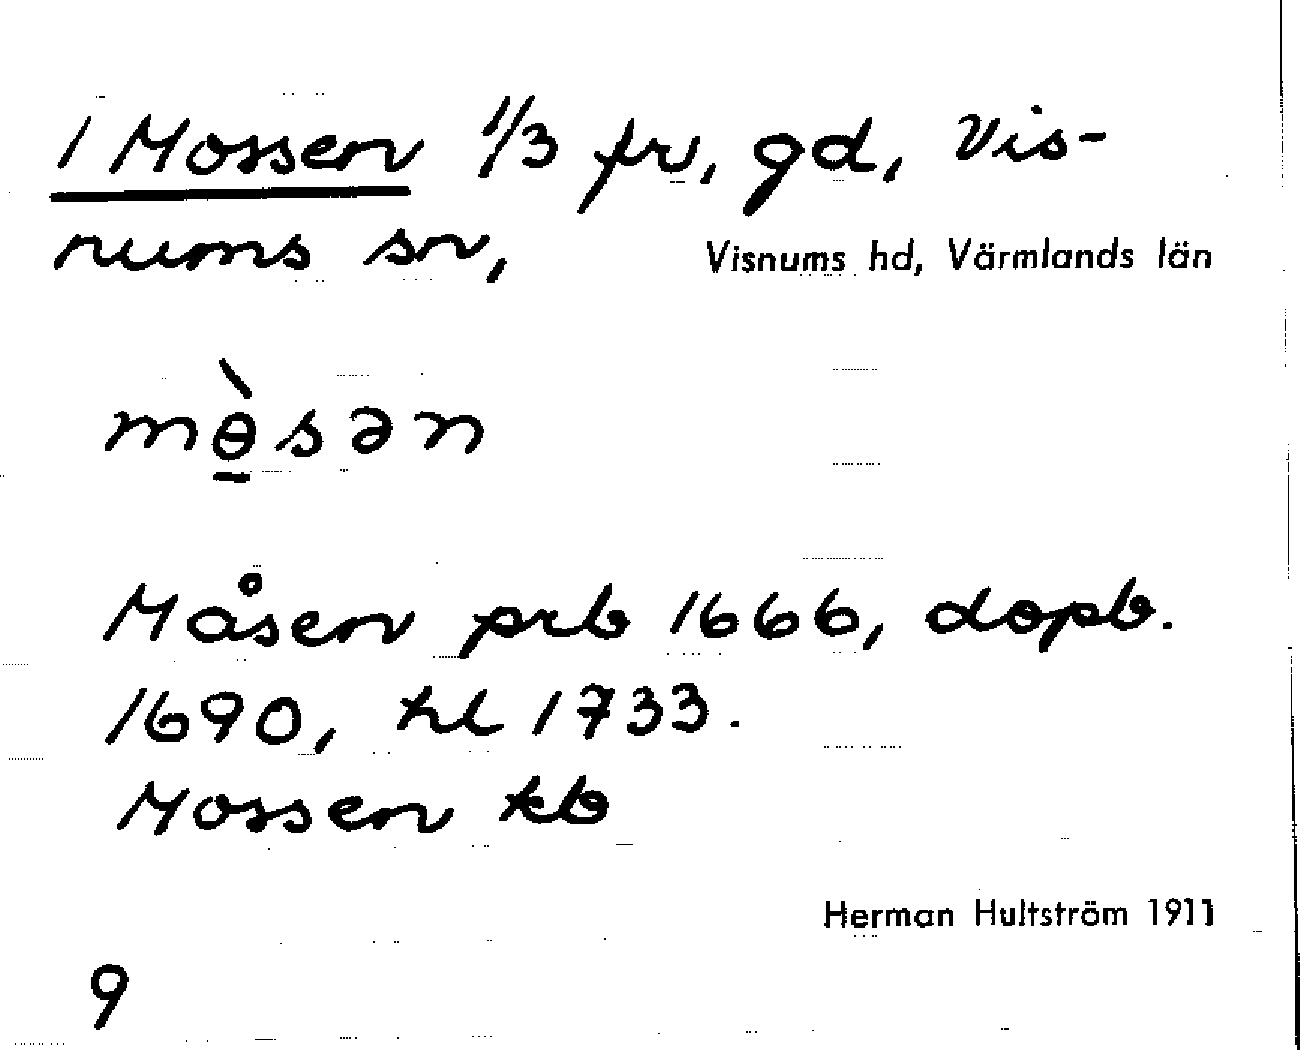 1 Mossen 1/3 fr, gd, Vis-
nums sn, Visnums hd, Värmlands län
mɵ̱̀sən
Måsen prb 1666, dopb.
1690, hl 1733.
Mossen kb
Herman Hultström 1911
9